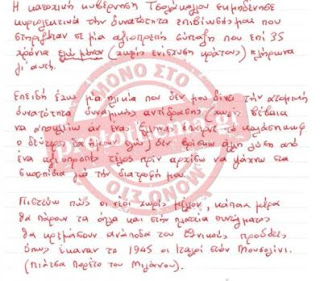 Η κατοχική κυβέρνηση Τσολάκογλου εκμηδένισε
κυριολεκτικά την δυνατότητα επιβίωσής μου που
στηριζόταν σε μια αξιοπρεπή σύνταξη που επί 35
χρόνια εγώ μόνον (χωρίς ενίσχυση κράτους) πλήρωνα
γι' αυτή.
Επειδή έχω μια ηλικία που δεν μου δίνει την ατομική
δυνατότητα δυναμικής αντίδρασης (χωρίς βέβαια
να αποκλείω αν ένας Έλληνας έπαιρνε το καλάσνικωφ
ο δεύτερος θα ήμουν εγώ) δεν βρίσκω άλλη λύση από
ένα αξιοπρεπές τέλος πριν αρχίσω να ψάχνω στα
σκουπίδια για την διατροφή μου.
Πιστεύω πως οι νέοι χωρίς μέλλον, κάποια μέρα
θα πάρουν τα όπλα και στην πλατεία συντάγματος
θα κρεμάσουν ανάποδα τους εθνικούς προδότες
όπως έκαναν το 1945 οι Ιταλοί στον Μουσολίνι.
(πιάτσα Λορέτο του Μιλάνου).
ΜΟΝΟ ΣΤΟ
ΜΟΝΟ ΣΤΟ